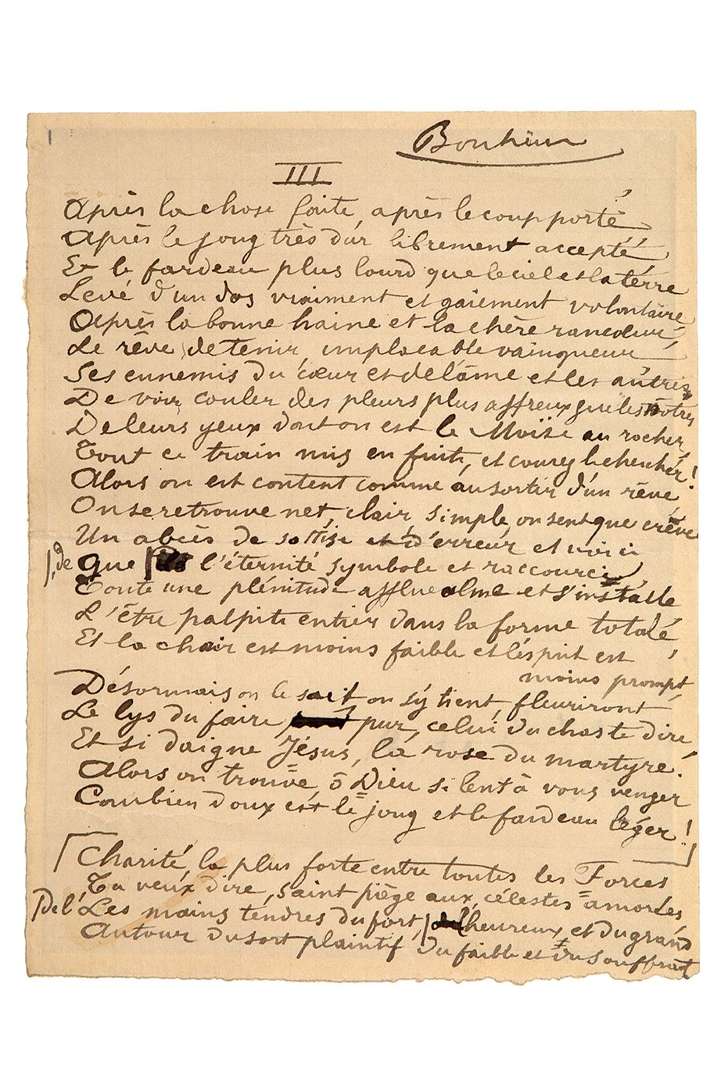 Bonheur
III
Après la chose faite, après le coup porté
Après le joug très dur librement accepté
Et le fardeau plus lourd que le ciel et la terre
Levé d'un dos vraiment et gaiement volontaire
Après la bonne haine et la chère rancœur
Le rêve de tenir, implacable vainqueur
Ses ennemis du cœur et de l'âme et les autres
De voir couler des pleurs plus affreux que les nôtres
De leurs yeux dont on est le Moïse au rocher,
Tout ce train mis en fuite, et courez le chercher!
Alors on est content comme au sortir d'un rêve
On se retrouve net, clair, simple, on sent que crève
Un abcès de sottise et d'erreur et voici
de que l'éternité symbole et raccourci
Toute une plénitude afflue alme et s'installe
L'être palpite entier dans la forme totale
Et la chair est moins faible et l'esprit est
moins prompt
Désormais on le sait on s'y tient fleuriront
Le lys du faire pur, celui du chaste dire
Et si daigne Jésus, la rose du martyre.
Alors on trouve, ô Dieu si lent à vous venger
Combien doux est le joug et le fardeau léger!
Charité, la plus forte entre toutes les Forces
Tu veux dire, saint piège aux célestes amorces
Les mains tendres du fort, de l'heureux, et du grand
Autour du sort plaintif du faible et du souffrant